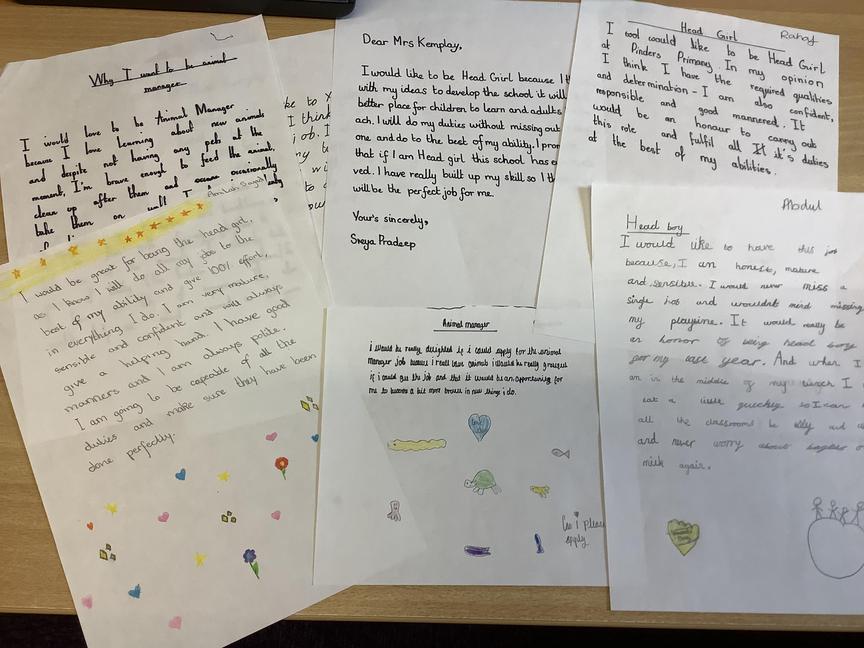 Why I want to be animal
manager.
I would love to be Animal Manager
because I love learning about new animals
and despite not having any pets at the
moment, I'm brave enough to feed the animal,
clean up after them and occasionally
take them on
ke to
I think
job. I
Dear Mrs Kemplay,
I would like to be Head Girl because I
with my ideas to develop the school it will
better place for children to learn and adults
ach. I will do my duties without missing out
one and do to the best of my ability. I
that if I am Head girl this school has
ved. I have really built up my skill so I
will be the perfect job for me.
Your's sincerely,
Sreya Pradeep
Head Girl
Rahaf
I too would like to be Head Girl
at Pinders Primary. In my opinion
I think I have the required qualities
and determination - I am also confident,
responsible and good mannered. It
would be an honour to carry out
this role and fulfil all it's duties
at the best of my abilities.
I would be great for being the head girl,
as I know I will do all my job to the
best of my ability and give 100% effort,
in everything I do. I am very mature,
sensible and confident and will always
give a helping hand. I have good
manners and I am always polite.
I am going to be capable of all the
duties and make sure they have been
done perfectly.
Animal manager
i would be really delighted if i could apply for the animal
manager job because i really love animals i would be really grateful
if i could get the job and that it would be an opportunity for
me to become a bit more in new things i do.
Can i please
apply
Abdul
Head boy
I would like to have this job
because, I am honest, mature
and sensible. I would never miss a
single job and wouldn't mind missing
my playtime. It would really be
an honor of being head boy
for my last year. And when I
am in the middle of my lunch I
eat a little quickly so I can
all the classrooms be and
and never worry about
milk again.